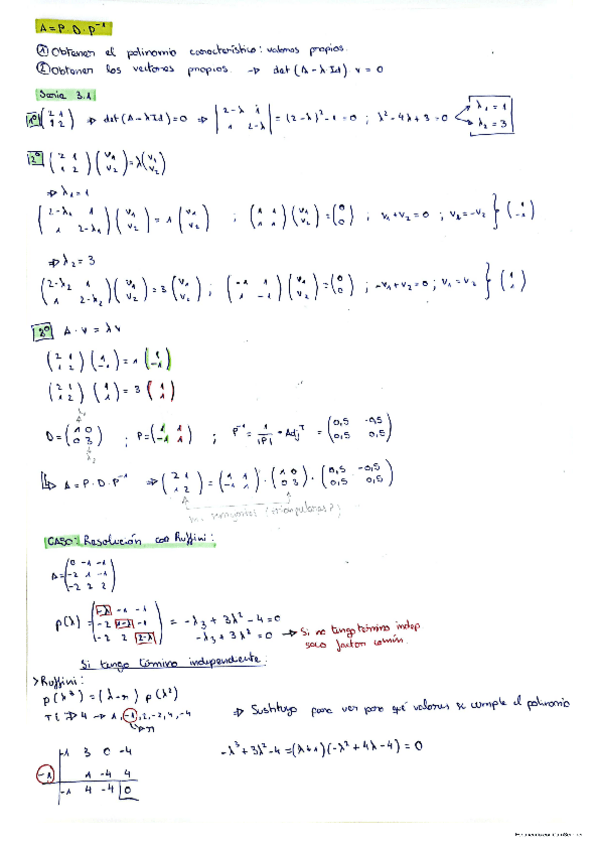 A = P · D · P⁻¹
① Obtener el polinomio característico: valores propios.
② Obtener los vectores propios. → det (A - λ Id) v = 0
Serie 3.1
1º (2 1; 1 2) ⇒ det(A - λId) = 0 ⇒ |2-λ 1; 1 2-λ| = (2-λ)² - 1 = 0 ; λ² - 4λ + 3 = 0 λ₁ = 1 λ₂ = 3
2º (2 1; 1 2) (v₁; v₂) = λ (v₁; v₂)
⇒ λ₁ = 1
(2-λ₁ 1; 1 2-λ₁) (v₁; v₂) = 1 (v₁; v₂) ; (1 1; 1 1) (v₁; v₂) = (0; 0) ; v₁ + v₂ = 0 ; v₁ = -v₂ } (1; -1)
⇒ λ₂ = 3
(2-λ₂ 1; 1 2-λ₂) (v₁; v₂) = 3 (v₁; v₂) ; (-1 1; 1 -1) (v₁; v₂) = (0; 0) ; -v₁ + v₂ = 0 ; v₁ = v₂ } (1; 1)
3º A · v = λ v
(2 1; 1 2) (1; -1) = 1 (1; -1)
(2 1; 1 2) (1; 1) = 3 (1; 1)
D = (1 0; 0 3) ; P = (1 1; -1 1) ; P⁻¹ = 1/|P| · Adjᵀ = (0,5 -0,5; 0,5 0,5)
↳ A = P · D · P⁻¹ ⇒ (2 1; 1 2) = (1 1; -1 1) · (1 0; 0 3) · (0,5 -0,5; 0,5 0,5)
CASO: Resolución con Ruffini:
A = (0 -1 -1; -2 1 -1; -2 2 2)
p(λ) = (-λ -1 -1; -2 1-λ -1; -2 2 2-λ) = -λ₃ + 3λ² - 4 = 0
-λ₃ + 3λ² = 0 → Si no tengo término indep
saco factor común.
Si tengo término independiente:
> Ruffini:
p(λ³) = (λ - n) p(λ²)
TI ⇒ 4 → 1, -1, 2, -2, 4, -4 ⇒ Sustituyo para ver para qué valores se cumple el polinomio
↳ n
-1 3 0 -4 -λ³ + 3λ² - 4 = (λ+1)(-λ² + 4λ - 4) = 0
-1 1 -4 4
-1 4 -4 0